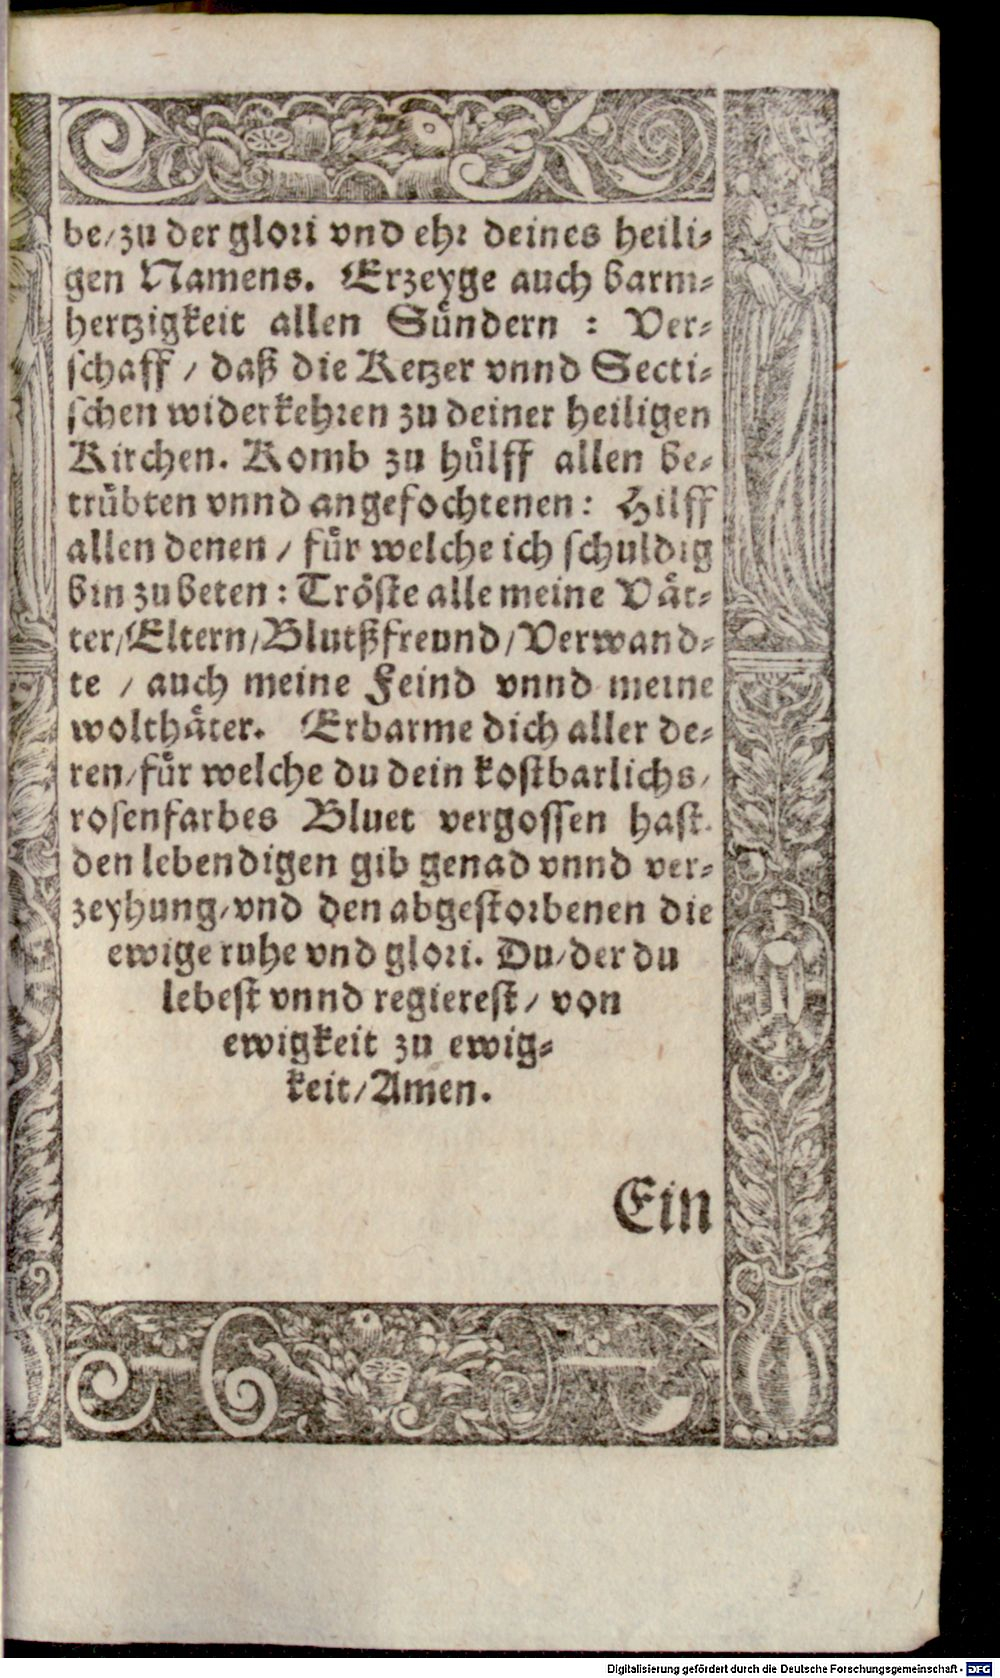 be/zu der glori vnd ehr deines heili-
gen Namens. Erzeyge auch barm-
hertzigkeit allen Sündern : Ver-
schaff / daß die Ketzer vnnd Secti-
schen widerkehren zu deiner heiligen
Kirchen. Komb zu hülff allen be-
trübten vnnd angefochtenen: Hilff
allen denen / für welche ich schuldig
bin zu beten: Tröste alle meine Vät-
ter/Eltern/Blutßfreund/Verwand-
te / auch meine Feind vnnd meine
wolthäter. Erbarme dich aller de-
ren/für welche du dein kostbarlichs/
rosenfarbes Bluet vergossen hast.
den lebendigen gib genad vnnd ver-
zeyhung/vnd den abgestorbenen die
ewige ruhe vnd glori. Du/der du
lebest vnnd regierest / von
ewigkeit zu ewig-
keit/Amen.
Ein
Digitalisierung gefördert durch die Deutsche Forschungsgemeinschaft - DFG